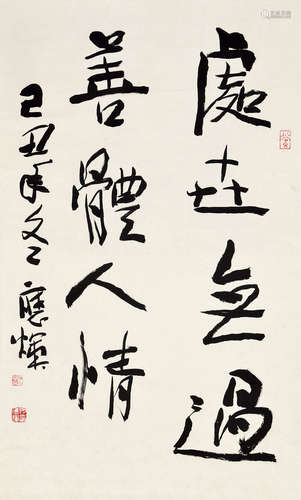 處世無過
善體人情
己丑年冬 應煇